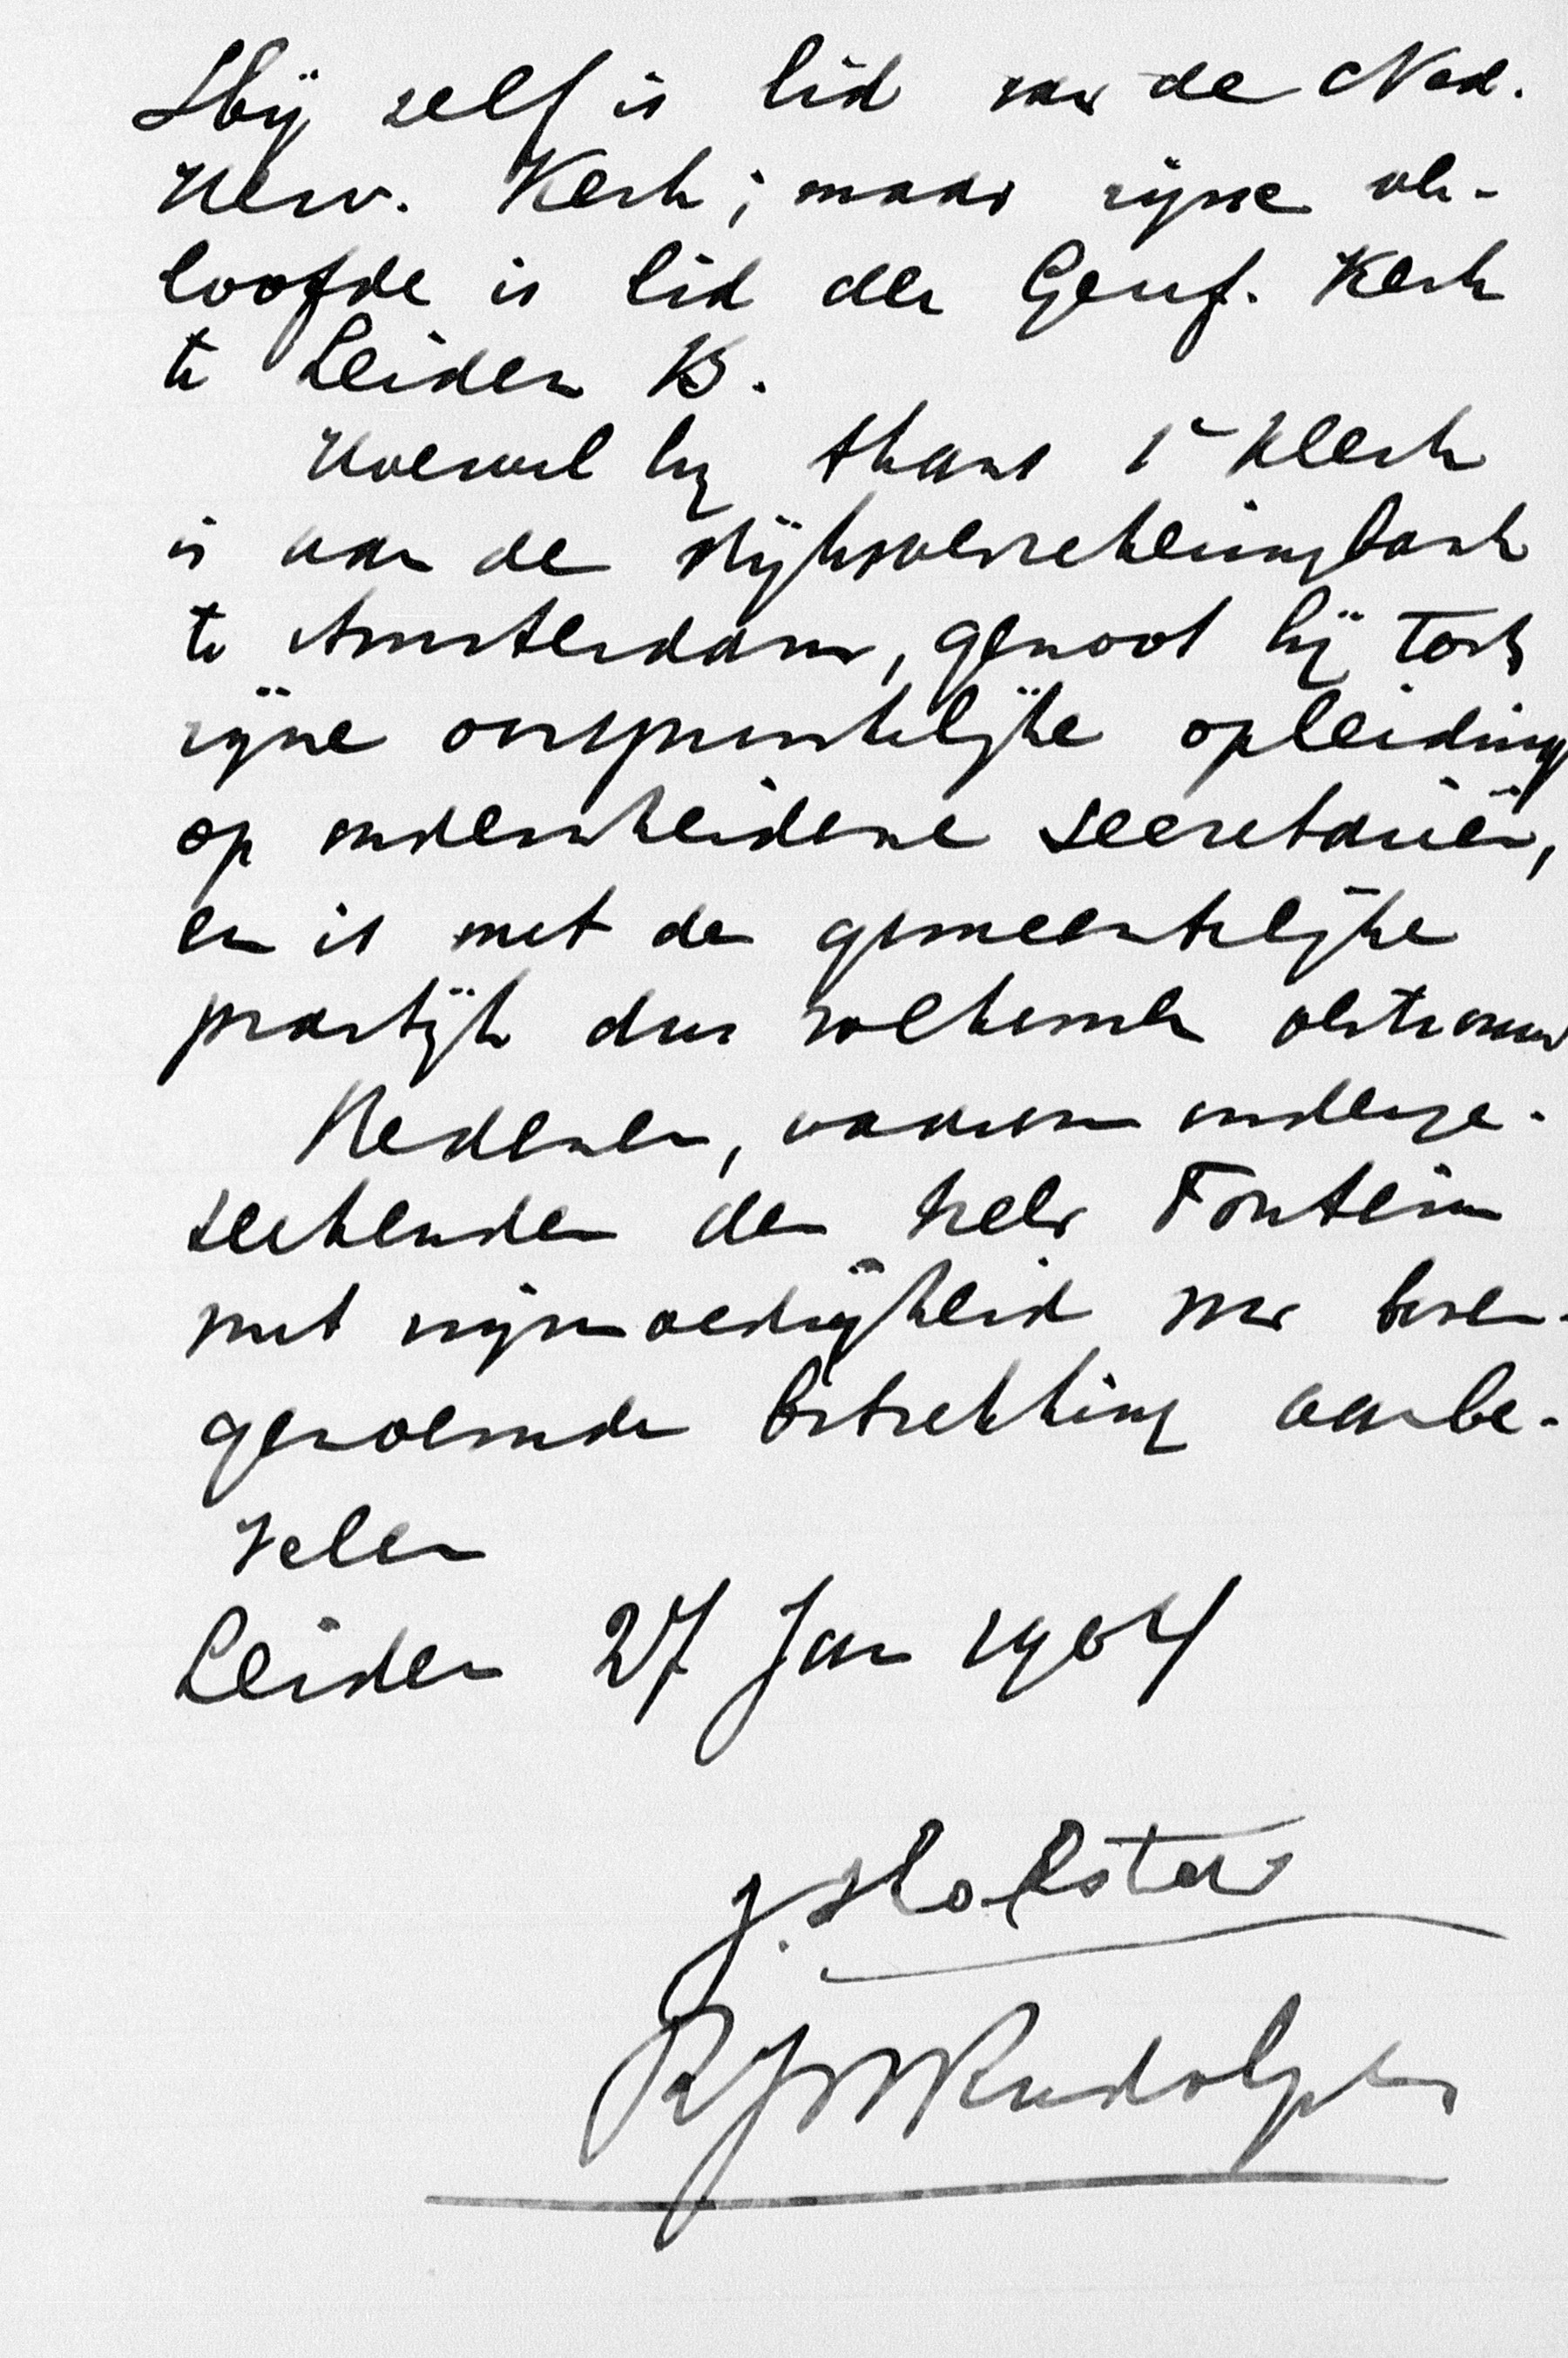 Hij zelf is lid van de Ned.
Herv. Kerk; maar zijne ver-
loofde is lid der Geref. Kerk
te Leiden B.
Hoewel hij thans 1e klerk
is aan de Rijksverzekeringsbank
te Amsterdam, genoot hij toch
zijne oorspronkelijke opleiding
op onderscheidene secretariën,
en is met de gemeentelijke
practijk dus volkomen vertrouwd
Redenen, waarom onderge-
teekenden den heer Fontein
met vrijmoedigheid voor boven-
genoemde betrekking aanbe-
velen
Leiden 27 Jan 1904
J. Holster
R J W Rudolph